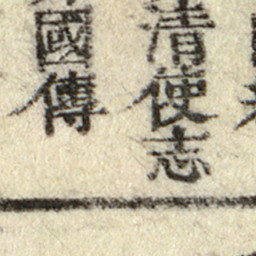 清使志
國傳